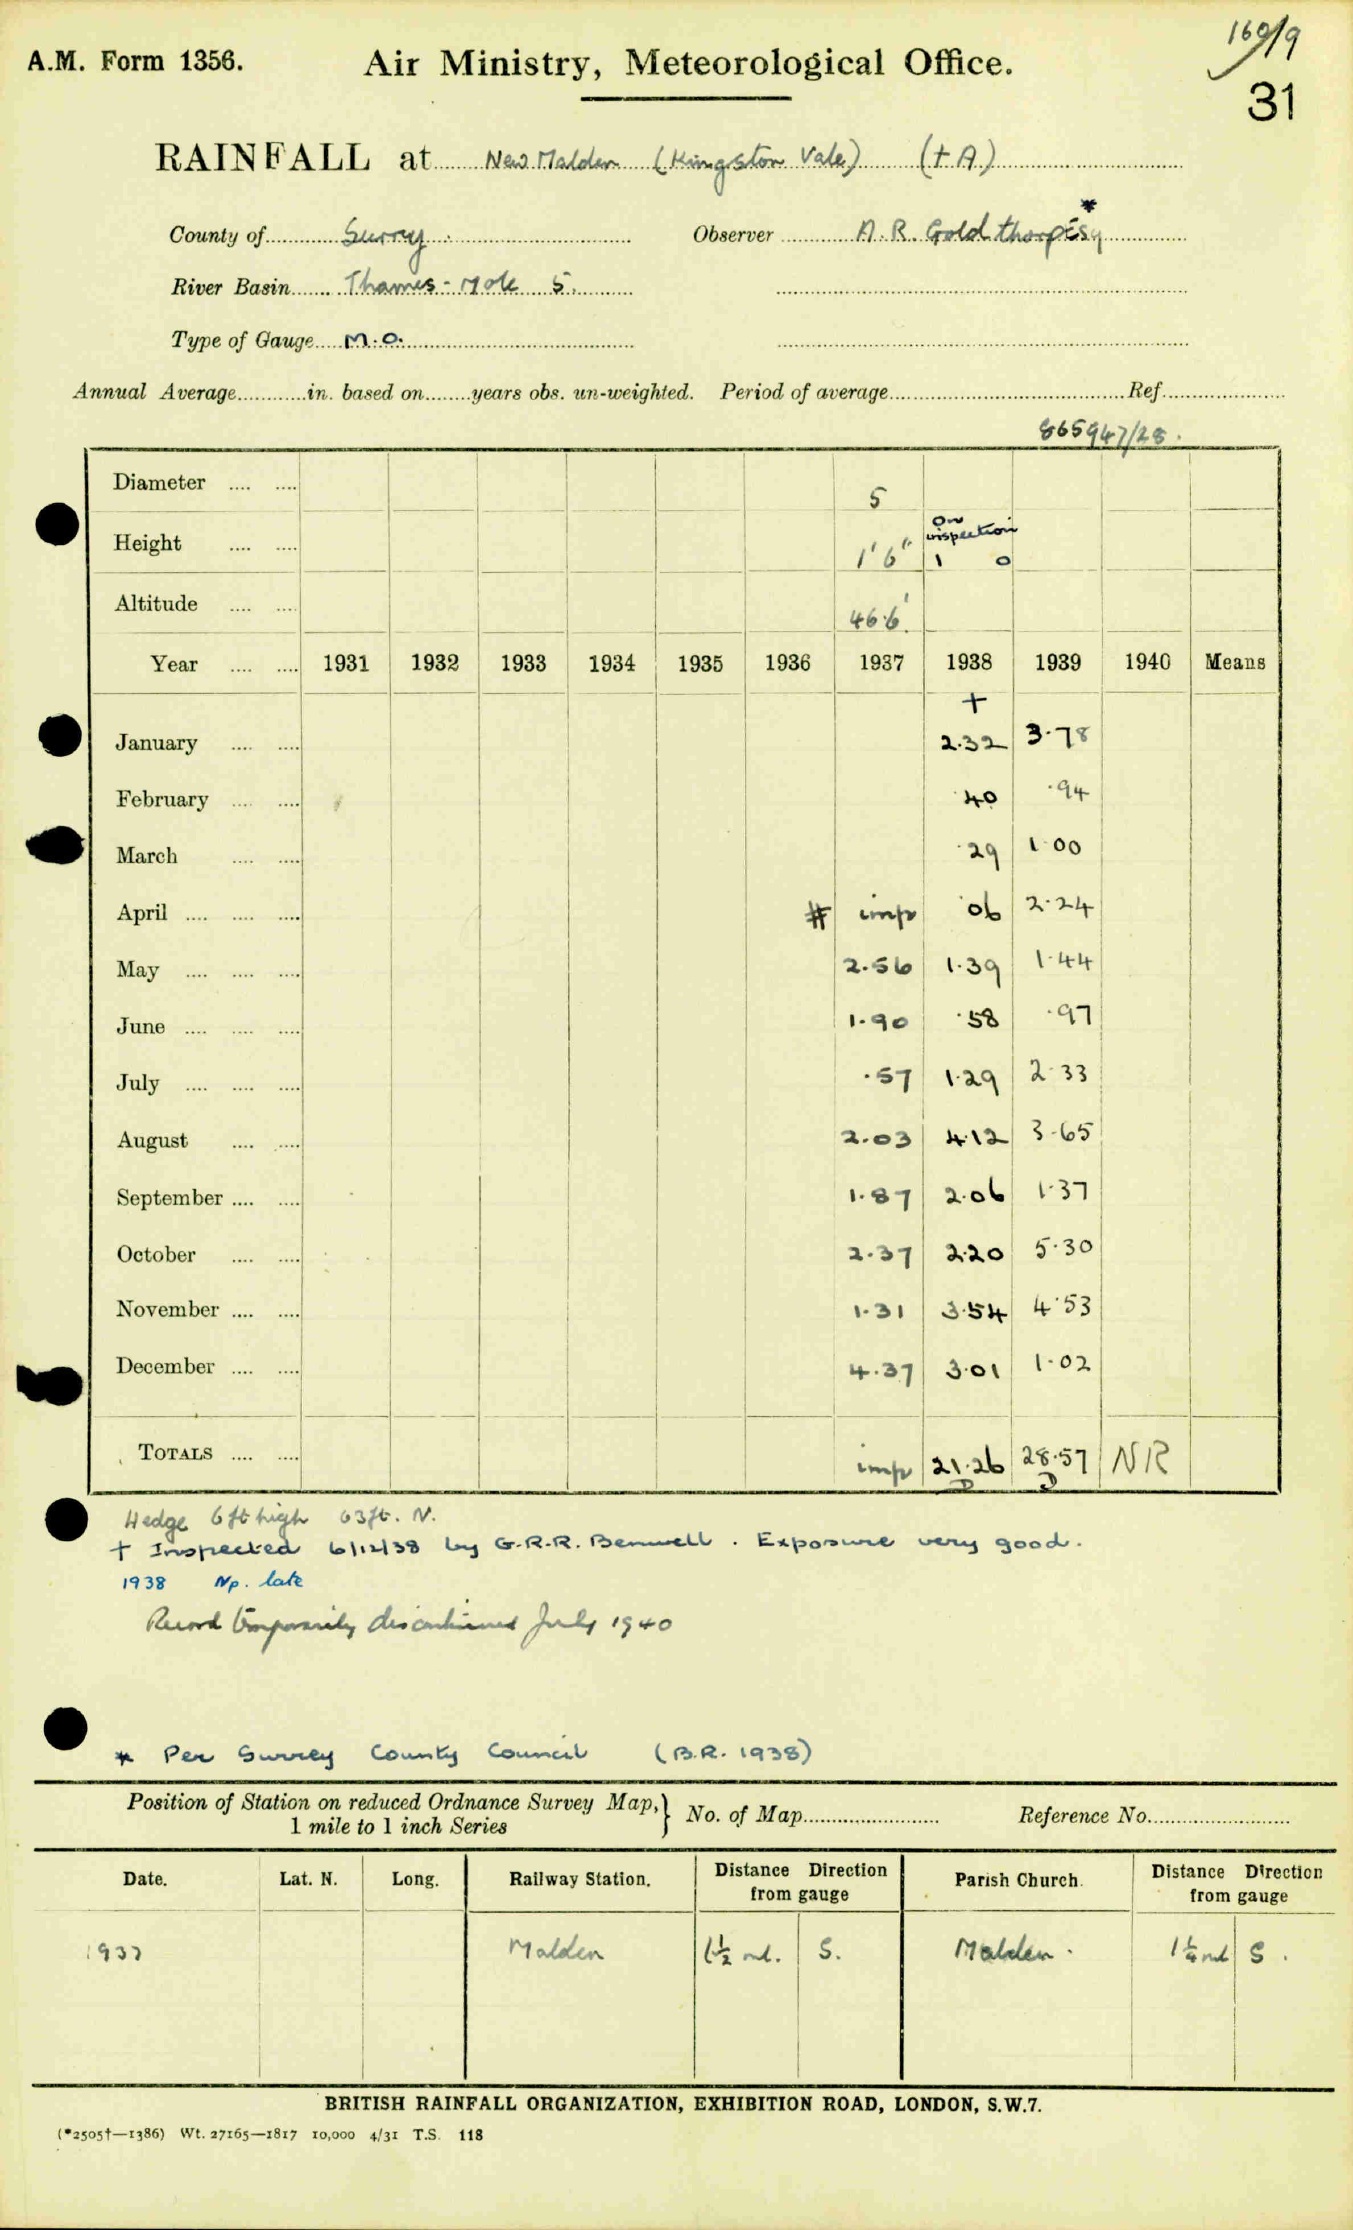 160/9
A.M. Form 1356. Air Ministry, Meteorological Office.
31
RAINFALL at New Malden (Kingston Vale) (+ A)
County of Surrey Observer A. R. Goldthorp Esq *
River Basin Thames - Mole 5.
Type of Gauge M.O.
Annual Average in. based on years obs. un-weighted. Period of average Ref.
865947/28.
Diameter 5
Height 1' 6" on inspection 1 0
Altitude 46.6'
Year 1931 1932 1933 1934 1935 1936 1937 1938 1939 1940 Means
+
January 2.32 3.78
February .40 .94
March .29 1.00
April # imp .06 2.24
May 2.56 1.39 1.44
June 1.90 .58 .97
July .57 1.29 2.33
August 2.03 4.12 3.65
September 1.87 2.06 1.37
October 2.37 2.20 5.30
November 1.31 3.54 4.53
December 4.37 3.01 1.02
TOTALS imp 21.26 28.57 NR
D D
Hedge 6ft high 63ft. N.
+ Inspected 6/12/38 by G.R.R. Benwell. Exposure very good.
1938 Np. late
Record temporarily discontinued July 1940
* Per Surrey County Council (B.R. 1938)
Position of Station on reduced Ordnance Survey Map, } No. of Map Reference No.
1 mile to 1 inch Series
Date. Lat. N. Long. Railway Station. Distance Direction from gauge Parish Church. Distance Direction from gauge
1937 Malden 1½ ml. S. Malden. 1¼ ml S.
BRITISH RAINFALL ORGANIZATION, EXHIBITION ROAD, LONDON, S.W.7.
(*2505†—1386) Wt. 27165—1817 10,000 4/31 T.S. 118